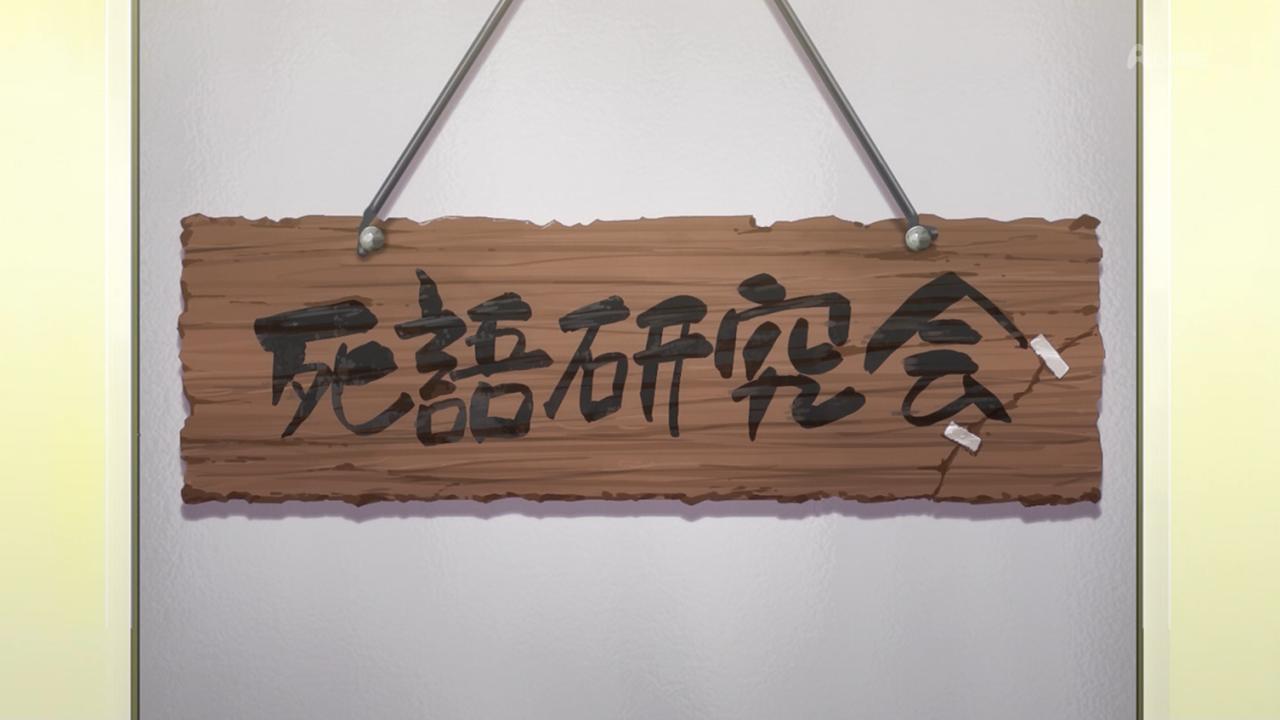 死語研究会